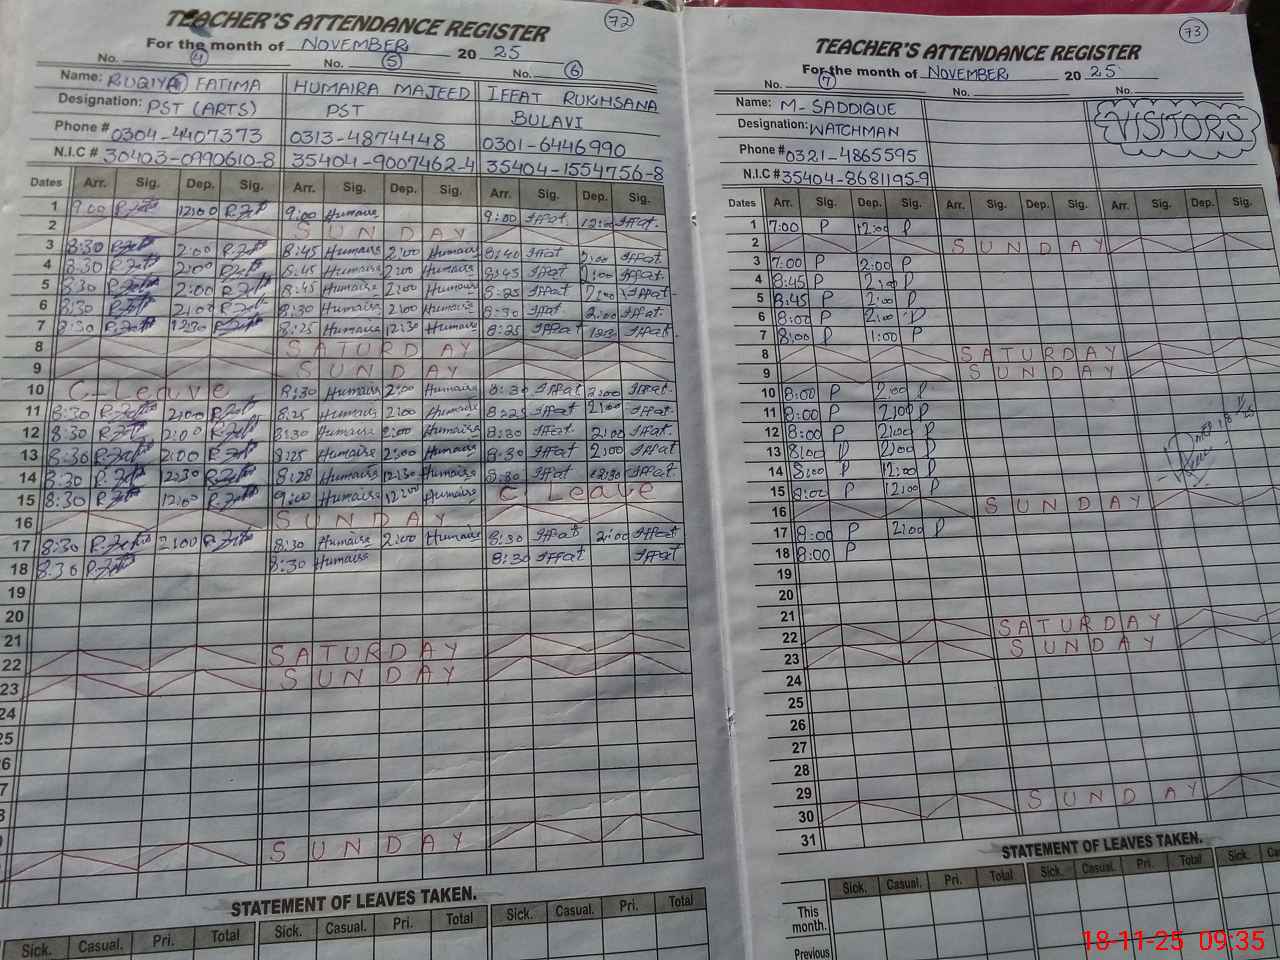 72
TEACHER'S ATTENDANCE REGISTER
For the month of NOVEMBER 20 25
No. 4 No. 5 No. 6
Name: RUQIYA FATIMA HUMAIRA MAJEED IFFAT RUKHSANA
Designation: PST (ARTS) PST BULAVI
Phone # 0304-4407373 0313-4874448 0301-6446990
N.I.C # 30403-0990610-8 35404-9007462-4 35404-1554756-8
Dates Arr. Sig. Dep. Sig. Arr. Sig. Dep. Sig. Arr. Sig. Dep. Sig.
1 9:00 12:00 9:00 Humaira 9:00 Iffat 12:00 Iffat
2 SUNDAY
3 8:30 2:00 8:45 Humaira 2:00 Humaira 8:40 Iffat 2:00 Iffat
4 8:30 2:00 8:45 Humaira 2:00 Humaira 8:45 Iffat 2:00 Iffat
5 8:30 2:00 8:45 Humaira 2:00 Humaira 8:25 Iffat 2:00 Iffat
6 8:30 2:00 8:30 Humaira 2:00 Humaira 8:30 Iffat 2:00 Iffat
7 8:30 12:30 8:25 Humaira 12:30 Humaira 8:25 Iffat 12:30 Iffat
8 SATURDAY
9 SUNDAY
10 C-Leave 8:30 Humaira 2:00 Humaira 8:30 Iffat 2:00 Iffat
11 8:30 2:00 8:25 Humaira 2:00 Humaira 8:25 Iffat 2:00 Iffat
12 8:30 2:00 8:30 Humaira 2:00 Humaira 8:30 Iffat 2:00 Iffat
13 8:30 2:00 8:25 Humaira 2:00 Humaira 8:30 Iffat 2:00 Iffat
14 8:30 12:30 8:28 Humaira 12:30 Humaira 8:30 Iffat 12:30 Iffat
15 8:30 12:00 9:00 Humaira 12:00 Humaira C-Leave
16 SUNDAY
17 8:30 2:00 8:30 Humaira 2:00 Humaira 8:30 Iffat 2:00 Iffat
18 8:30 8:30 Humaira 8:30 Iffat Iffat
19
20
21
22 SATURDAY
23 SUNDAY
24
25
26
SUNDAY
STATEMENT OF LEAVES TAKEN.
Sick. Casual. Pri. Total Sick. Casual. Pri. Total Sick. Casual. Pri. Total
73
TEACHER'S ATTENDANCE REGISTER
For the month of NOVEMBER 20 25
No. 7 No. No.
Name: M-SADDIQUE VISITORS
Designation: WATCHMAN
Phone # 0321-4865595
N.I.C # 35404-8681195-9
Dates Arr. Sig. Dep. Sig. Arr. Sig. Dep. Sig. Arr. Sig. Dep. Sig.
1 7:00 P 12:00 P
2 SUNDAY
3 7:00 P 2:00 P
4 8:45 P 2:00 P
5 8:45 P 2:00 P
6 8:00 P 2:00 P
7 8:00 P 1:00 P
8 SATURDAY
9 SUNDAY
10 8:00 P 2:00 P
11 8:00 P 2:00 P
12 8:00 P 2:00 P
13 8:00 P 2:00 P
14 8:00 P 12:00 P
15 8:00 P 12:00 P
16 SUNDAY
17 8:00 P 2:00 P
18 8:00 P
19
20
21
22 SATURDAY
23 SUNDAY
24
25
26
27
28
29
30 SUNDAY
31
STATEMENT OF LEAVES TAKEN.
Sick. Casual. Pri. Total Sick. Casual. Pri. Total Sick.
This month.
Previous
18-11-25 09:35